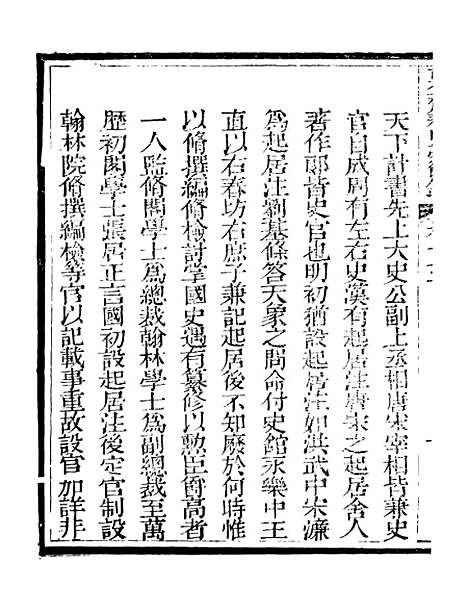 天下計書先上大史公副上丞相唐宋宰相皆兼史
官自成周有左右史漢有起居注唐宋之起居舍人
著作郎皆史官也明初猶設起居注如洪武中宋濂
爲起居注劉基條答天象之問命付史館永樂中王
直以右春坊右庶子兼記起居後不知廢於何時惟
以脩撰編脩檢討掌國史遇有纂修以勳臣爵高者
一人監脩閣學士爲總裁翰林學士爲副總裁至萬
歷初閣學士張居正言國初設起居注後定官制設
翰林院脩撰編檢等官以記載事重故設官加詳非